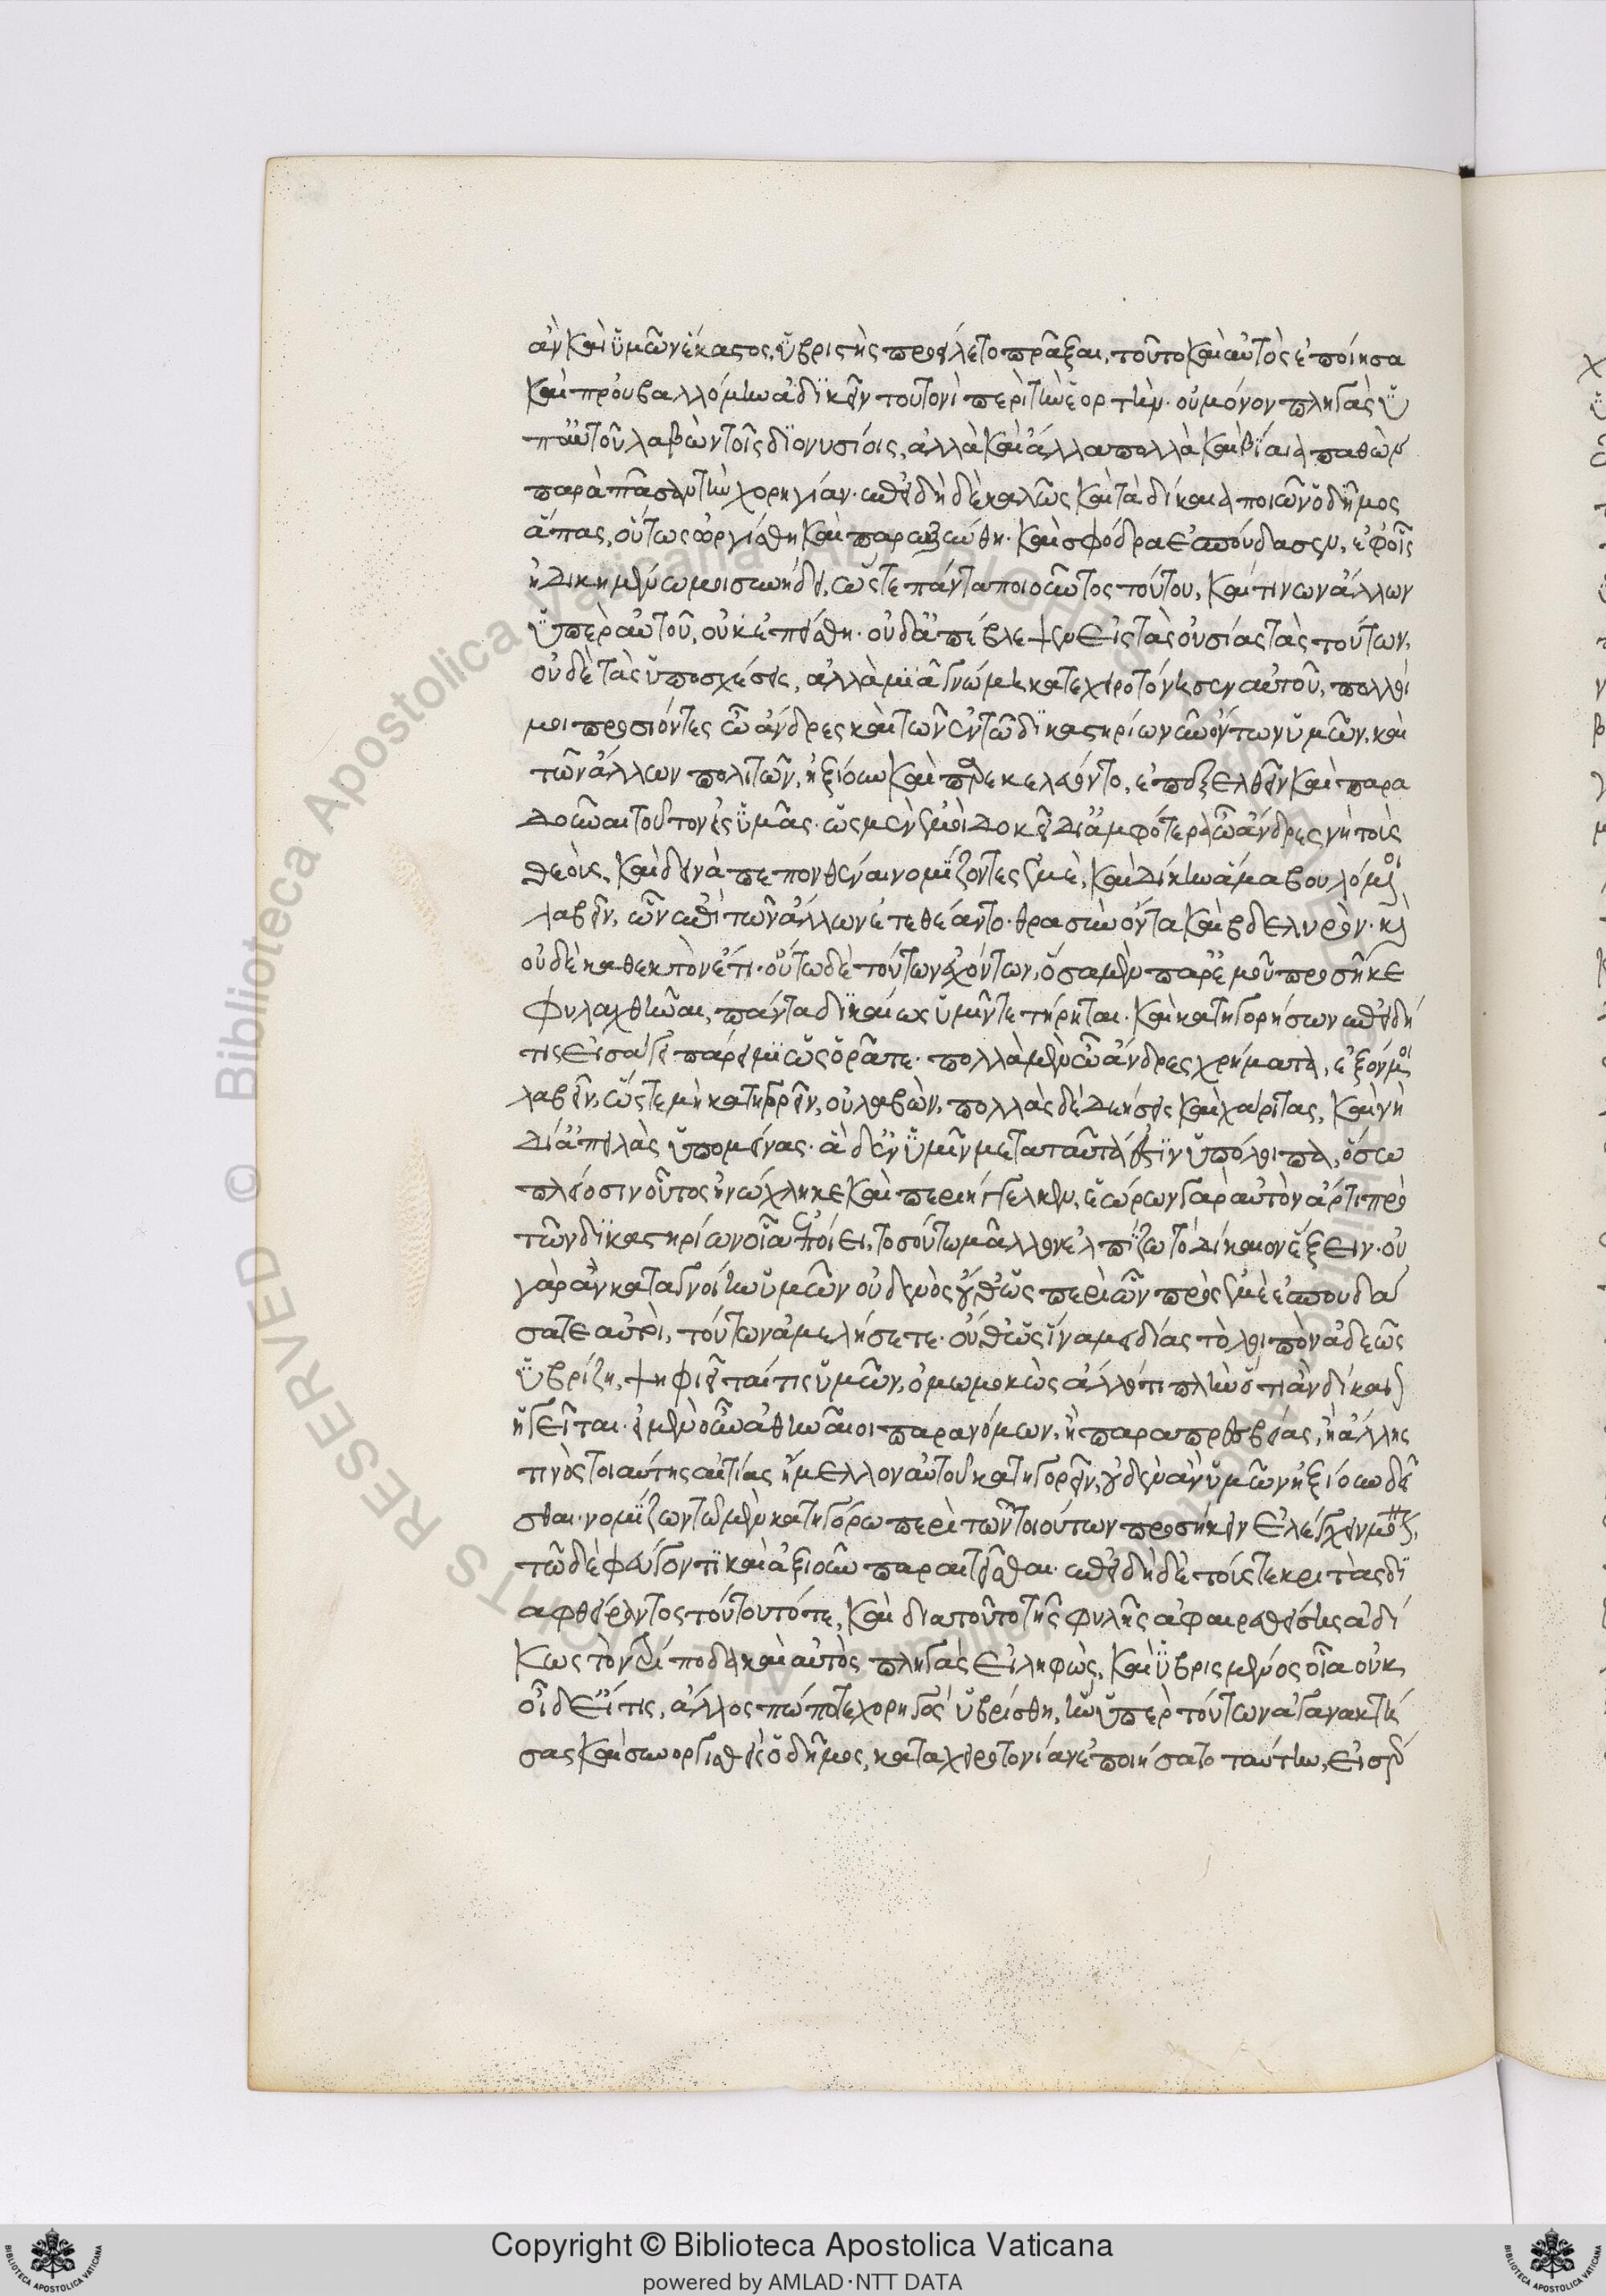 ἂν καὶ ὑμῶν ἕκαστος ὑβρισθεὶς προείλετο πρᾶξαι, τοῦτο καὶ αὐτὸς ἐποίησα
καὶ προὐβαλλόμην ἀδικεῖν τουτονὶ περὶ τὴν ἑορτήν· οὐ μόνον πληγὰς ὑ
π' αὐτοῦ λαβὼν τοῖς διονυσίοις, ἀλλὰ καὶ ἄλλα πολλὰ καὶ βίαια παθὼν
παρὰ πᾶσαν τὴν χορηγίαν· ἐπειδὴ δὲ καλῶς καὶ τὰ δίκαια ποιῶν ὁ δῆμος
ἅπας, οὕτως ὠργίσθη καὶ παρωξύνθη· καὶ σφόδρα ἐσπούδασεν, ἐφ' οἷς
ἠδικημένῳ μοι συνῄδει, ὥστε πάντα ποιοῦντος τούτου, καί τινων ἄλλων
ὑπὲρ αὐτοῦ, οὐκ ἐπείσθη· οὐδ' ἀπέβλεψεν εἰς τὰς οὐσίας τὰς τούτων,
οὐδὲ τὰς ὑποσχέσεις, ἀλλὰ μιᾷ γνώμῃ κατεχειροτόνησεν αὐτοῦ, πολλοί
μοι προσιόντες ὦ ἄνδρες καὶ τῶν ἐν τῶ δικαστηρίων νῦν ὄντων ὑμῶν, καὶ
τῶν ἄλλων πολιτῶν, ἠξίουν καὶ παρεκελεύοντο, ἐπεξελθεῖν καὶ παρα
δοῦναι τοῦτον εἰς ὑμᾶς· ὡς μὲν ἐμοὶ δοκεῖ δι' ἀμφότερα ὦ ἄνδρες νὴ τοὺς
θεοὺς, καὶ δεινὰ πεπονθέναι νομίζοντες ἐμὲ, καὶ δίκην ἅμα βουλόμενοι
λαβεῖν, ὧν ἐπὶ τῶν ἄλλων ἐτεθέαντο· θρασὺν ὄντα καὶ βδελυρὸν· καὶ
οὐδὲ καθεκτὸν ἔτι· οὕτω δὲ τούτων ἐχόντων, ὅσα μὲν παρ' ἐμοῦ προσῆκε
φυλαχθῆναι, πάντα δικαίως ὑμῖν τετήρηται· καὶ κατηγορήσων ἐπειδή
τις εἰσάγει πάρειμι ὡς ὁρᾶτε· πολλὰ μὲν ὦ ἄνδρες χρήματα, ἐξόν μοι
λαβεῖν, ὥστε μὴ κατηγορεῖν, οὐ λαβὼν, πολλὰς δὲ δεήσεις καὶ χάριτας, καὶ νὴ
Δί' ἀπειλὰς ὑπομείνας· ἃ δ' ἐν ὑμῖν μετὰ ταῦτά ἐστιν ὑπόλοιπα, ὅσῳ
πλείοσιν οὗτος ἠνώχληκε καὶ περιήγγελκεν, ἑώρων γὰρ αὐτὸν ἄρτι πρὸ
τῶν δικαστηρίων οἷα ἐποίει, τοσούτῳ μᾶλλον ἐλπίζω τὸ δίκαιον ἕξειν· οὐ
γὰρ ἂν καταγνοίην ὑμῶν οὐδενὸς οὔθ' ὡς περὶ ὧν πρὸς ἐμὲ ἐσπουδά
σατε αὐτοὶ, τούτων ἀμελήσετε· οὔθ' ὡς ἵνα μειδίας τὸ λοιπὸν ἀδεῶς
ὑβρίζη, ψηφιεῖταί τις ὑμῶν, ὀμωμοκὼς ἄλλό τι πλὴν ὅ τι ἂν δίκαιον
ἡγεῖται· εἰ μὲν οὖν ὦ ἀθηναῖοι παρανόμων, ἢ παραπρεσβείας, ἢ ἄλλης
τινὸς τοιαύτης αἰτίας ἤμελλον αὐτοῦ κατηγορεῖν, οὐδὲν ἂν ὑμῶν ἠξίουν δεῖ
σθαι· νομίζων τῶ μὲν κατηγόρῳ περὶ τῶν τοιούτων προσήκειν ἐλέγχειν μόνον,
τῶ δὲ φεύγοντι καὶ ἀξιοῦν παραιτεῖσθαι· ἐπειδὴ δὲ τούς τε κριτὰς δι
αφθείροντος τούτου τότε, καὶ διὰ τοῦτο τῆς φυλῆς ἀφαιρεθείσης ἀδί
κως τὸν τρίποδα καὶ αὐτὸς πληγὰς εἰληφὼς, καὶ ὑβρισμένος οἷα οὐκ
οἶδ' εἴ τις, ἄλλος πώποτε χορηγὸς ὑβρίσθη, ἣν ὑπὲρ τούτων ἀγανακτή
σας καὶ συνοργισθεὶς ὁ δῆμος, καταχειροτονίαν ἐποιήσατο ταύτην, εἰσέρ
Copyright © Biblioteca Apostolica Vaticana
powered by AMLAD·NTT DATA